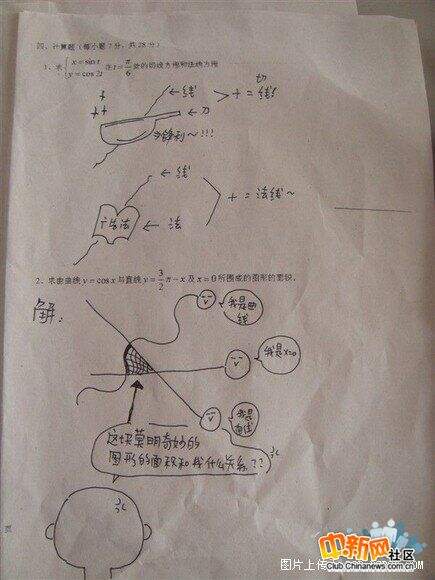 四、计算题(每小题7分,共28分)
1、求{x=sint
y=cos2t 在t=π/6 处的切线方程和法线方程
←线
+ = 切线
++
←刀
锋利~!!!
←线
+ = 法线~
←法
2、求由曲线y=cosx与直线y=3/2π-x及x=0所围成的图形的面积。
解:
我是曲线
我是x=0
我是直线
这块莫明奇妙的
图形的面积和我什么关系??
中新网社区
Club.Chinanews.com.cn